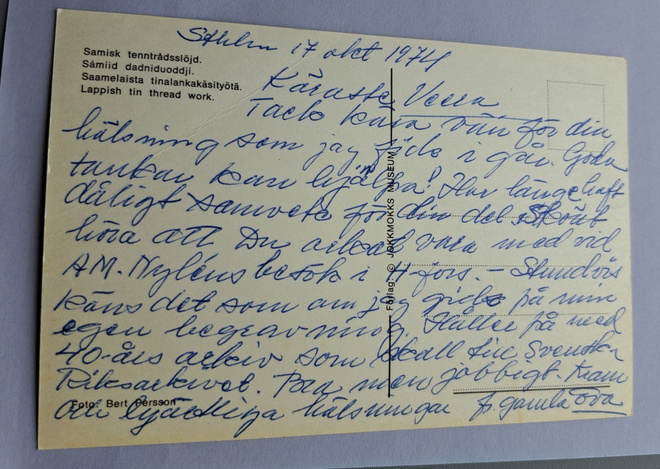 Samisk tenntrådsslöjd.
Sámiid dadniduoddji.
Saamelaista tinalankakäsityötä.
Lappish tin thread work.
Sthlm 17 okt 1974
Käraste Veera
Tack kära vän för din
hälsning som jag fick i går. Goda
tankar kan hjälpa! Har länge haft
dåligt samvete för din del. Skönt
höra att Du också vara med vid
AM. Nyléns besök i H-fors. – Stundvis
käns det som om jag gick på min
egen begravning. Håller på med
40-års arkiv som skall till Svenska
Riksarkivet. Bra men jobbigt. Kram
och hjärtliga hälsningar fr. gamla Ova
Förlag: © JOKKMOKKS MUSEUM
Foto: Bert Persson